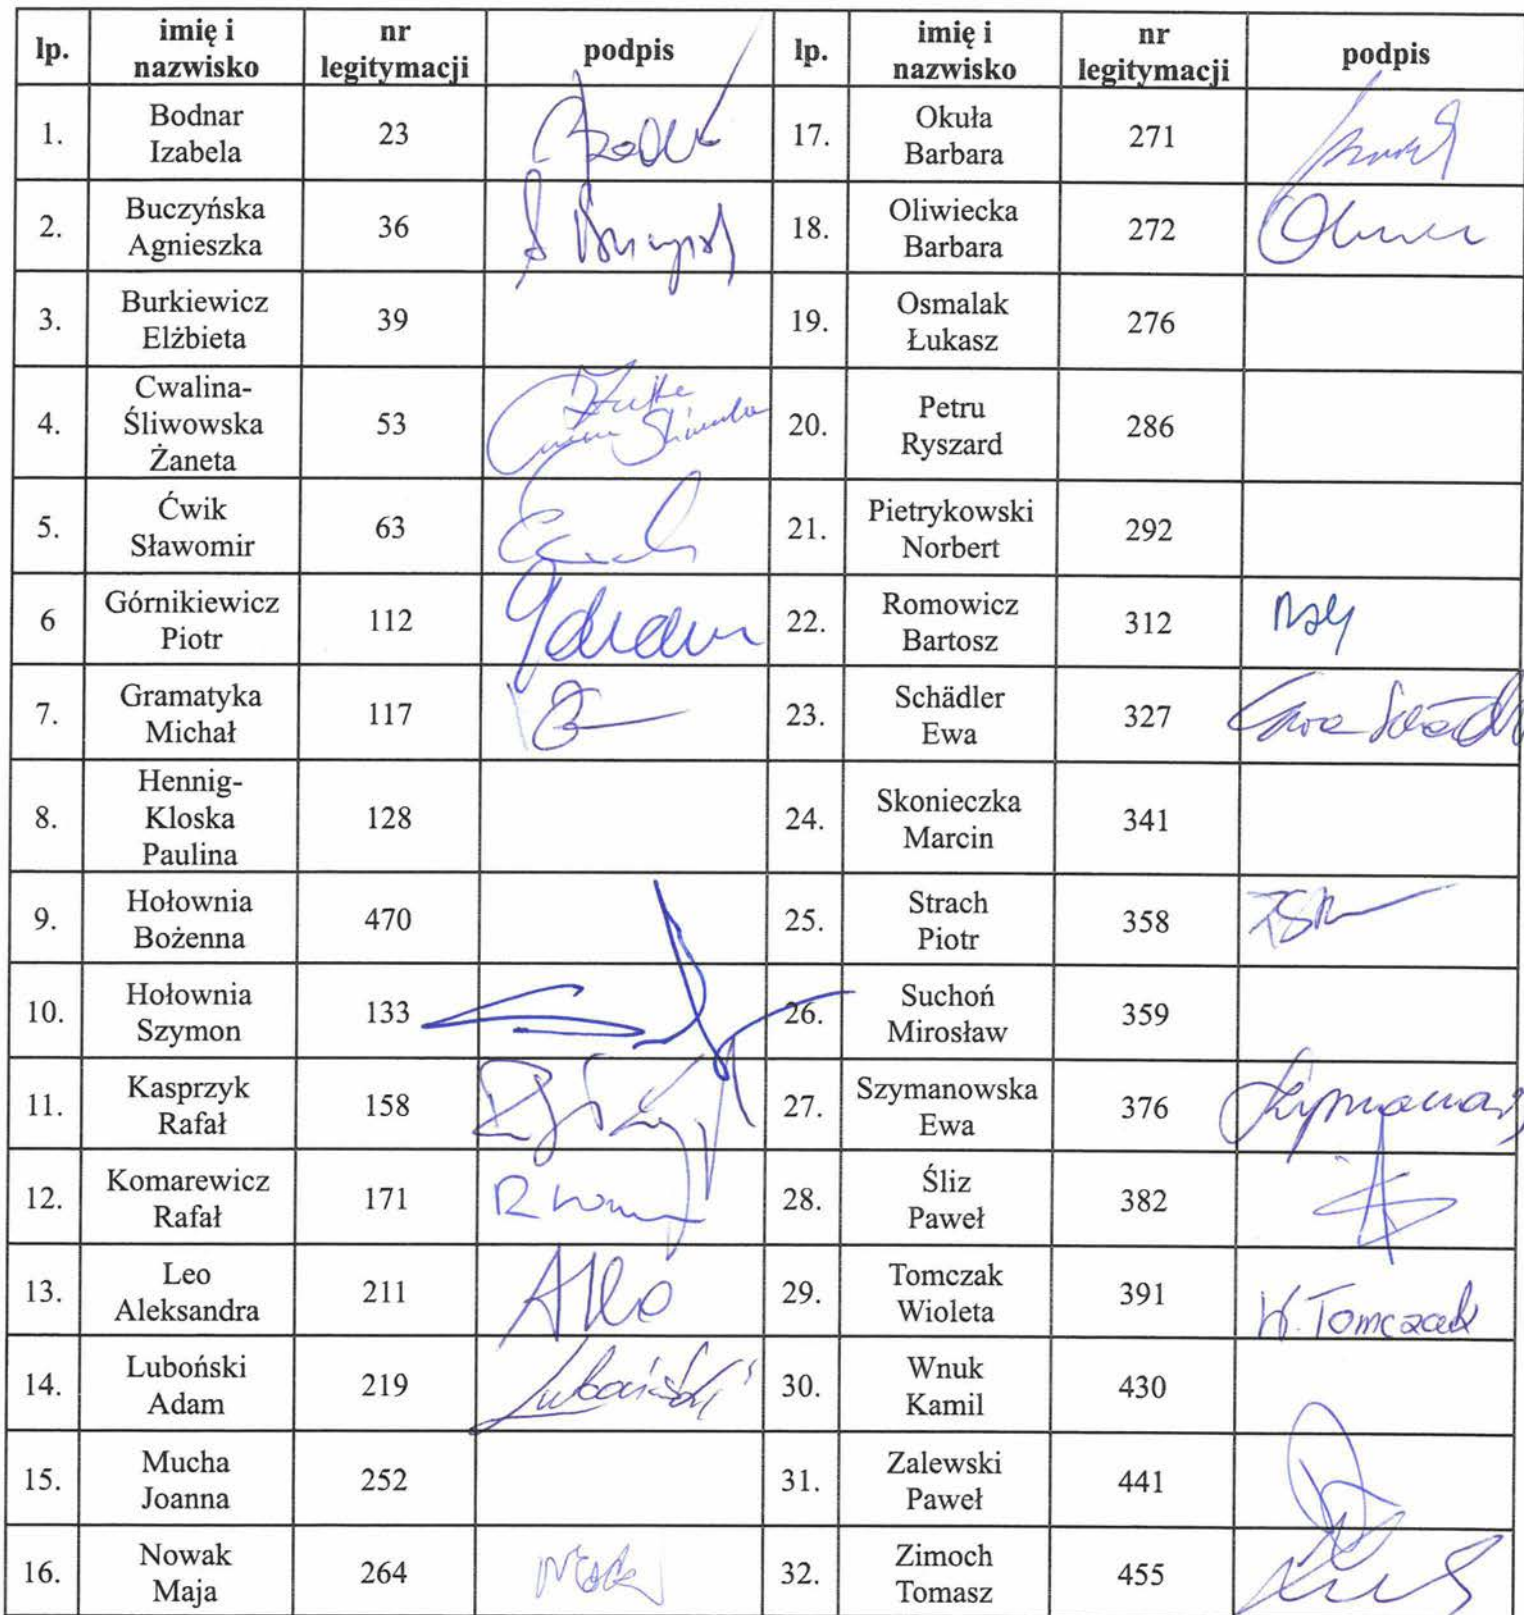 lp. imię i nazwisko nr legitymacji podpis lp. imię i nazwisko nr legitymacji podpis
1. Bodnar Izabela 23 17. Okuła Barbara 271
2. Buczyńska Agnieszka 36 18. Oliwiecka Barbara 272
3. Burkiewicz Elżbieta 39 19. Osmalak Łukasz 276
4. Cwalina-Śliwowska Żaneta 53 20. Petru Ryszard 286
5. Ćwik Sławomir 63 21. Pietrykowski Norbert 292
6 Górnikiewicz Piotr 112 22. Romowicz Bartosz 312
7. Gramatyka Michał 117 23. Schädler Ewa 327
8. Hennig-Kloska Paulina 128 24. Skonieczka Marcin 341
9. Hołownia Bożenna 470 25. Strach Piotr 358
10. Hołownia Szymon 133 26. Suchoń Mirosław 359
11. Kasprzyk Rafał 158 27. Szymanowska Ewa 376
12. Komarewicz Rafał 171 28. Śliz Paweł 382
13. Leo Aleksandra 211 29. Tomczak Wioleta 391 W. Tomczak
14. Luboński Adam 219 30. Wnuk Kamil 430
15. Mucha Joanna 252 31. Zalewski Paweł 441
16. Nowak Maja 264 32. Zimoch Tomasz 455